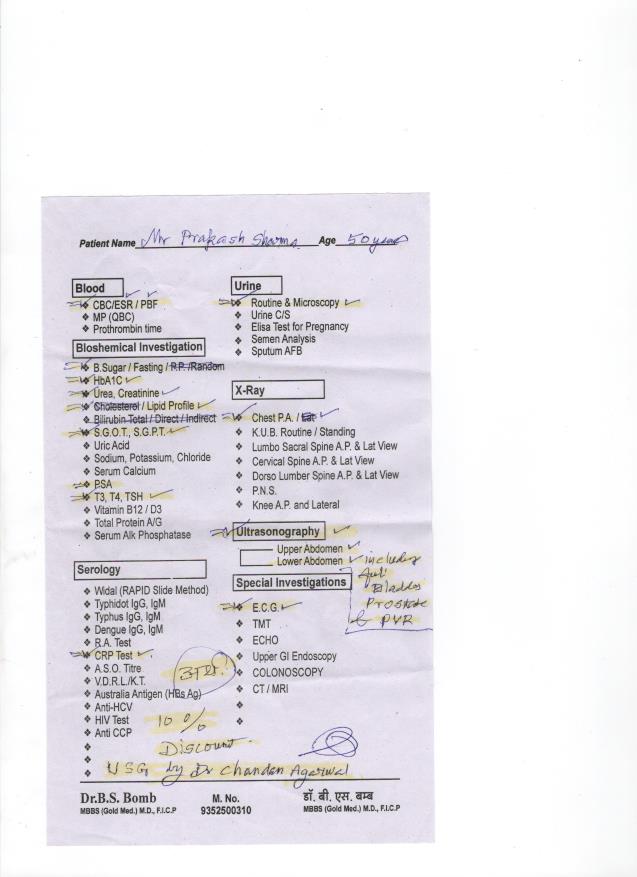 Patient Name Mr Prakash Sharma Age 50 years
Blood
CBC/ESR / PBF
MP (QBC)
Prothrombin time
Bioshemical Investigation
B.Sugar / Fasting / P.P. /Random
HbA1C
Urea, Creatinine
Cholesterol / Lipid Profile
Bilirubin Total / Direct / Indirect
S.G.O.T., S.G.P.T.
Uric Acid
Sodium, Potassium, Chloride
Serum Calcium
PSA
T3, T4, TSH
Vitamin B12 / D3
Total Protein A/G
Serum Alk Phosphatase
Serology
Widal (RAPID Slide Method)
Typhidot IgG, IgM
Typhus IgG, IgM
Dengue IgG, IgM
R.A. Test
CRP Test
A.S.O. Titre
V.D.R.L./K.T.
Australia Antigen (HBs Ag)
Anti-HCV
HIV Test
Anti CCP
Urine
Routine & Microscopy
Urine C/S
Elisa Test for Pregnancy
Semen Analysis
Sputum AFB
X-Ray
Chest P.A. / Lat
K.U.B. Routine / Standing
Lumbo Sacral Spine A.P. & Lat View
Cervical Spine A.P. & Lat View
Dorso Lumber Spine A.P. & Lat View
P.N.S.
Knee A.P. and Lateral
Ultrasonography
Upper Abdomen
Lower Abdomen
including
full
Bladder
Prostate
& PVR
Special Investigations
E.C.G.
TMT
ECHO
Upper GI Endoscopy
COLONOSCOPY
CT / MRI
10 %
Discount
USG by Dr Chandan Agarwal
Dr.B.S. Bomb
MBBS (Gold Med.) M.D., F.I.C.P
M. No.
9352500310
डॉ. बी. एस. बम्ब
MBBS (Gold Med.) M.D., F.I.C.P